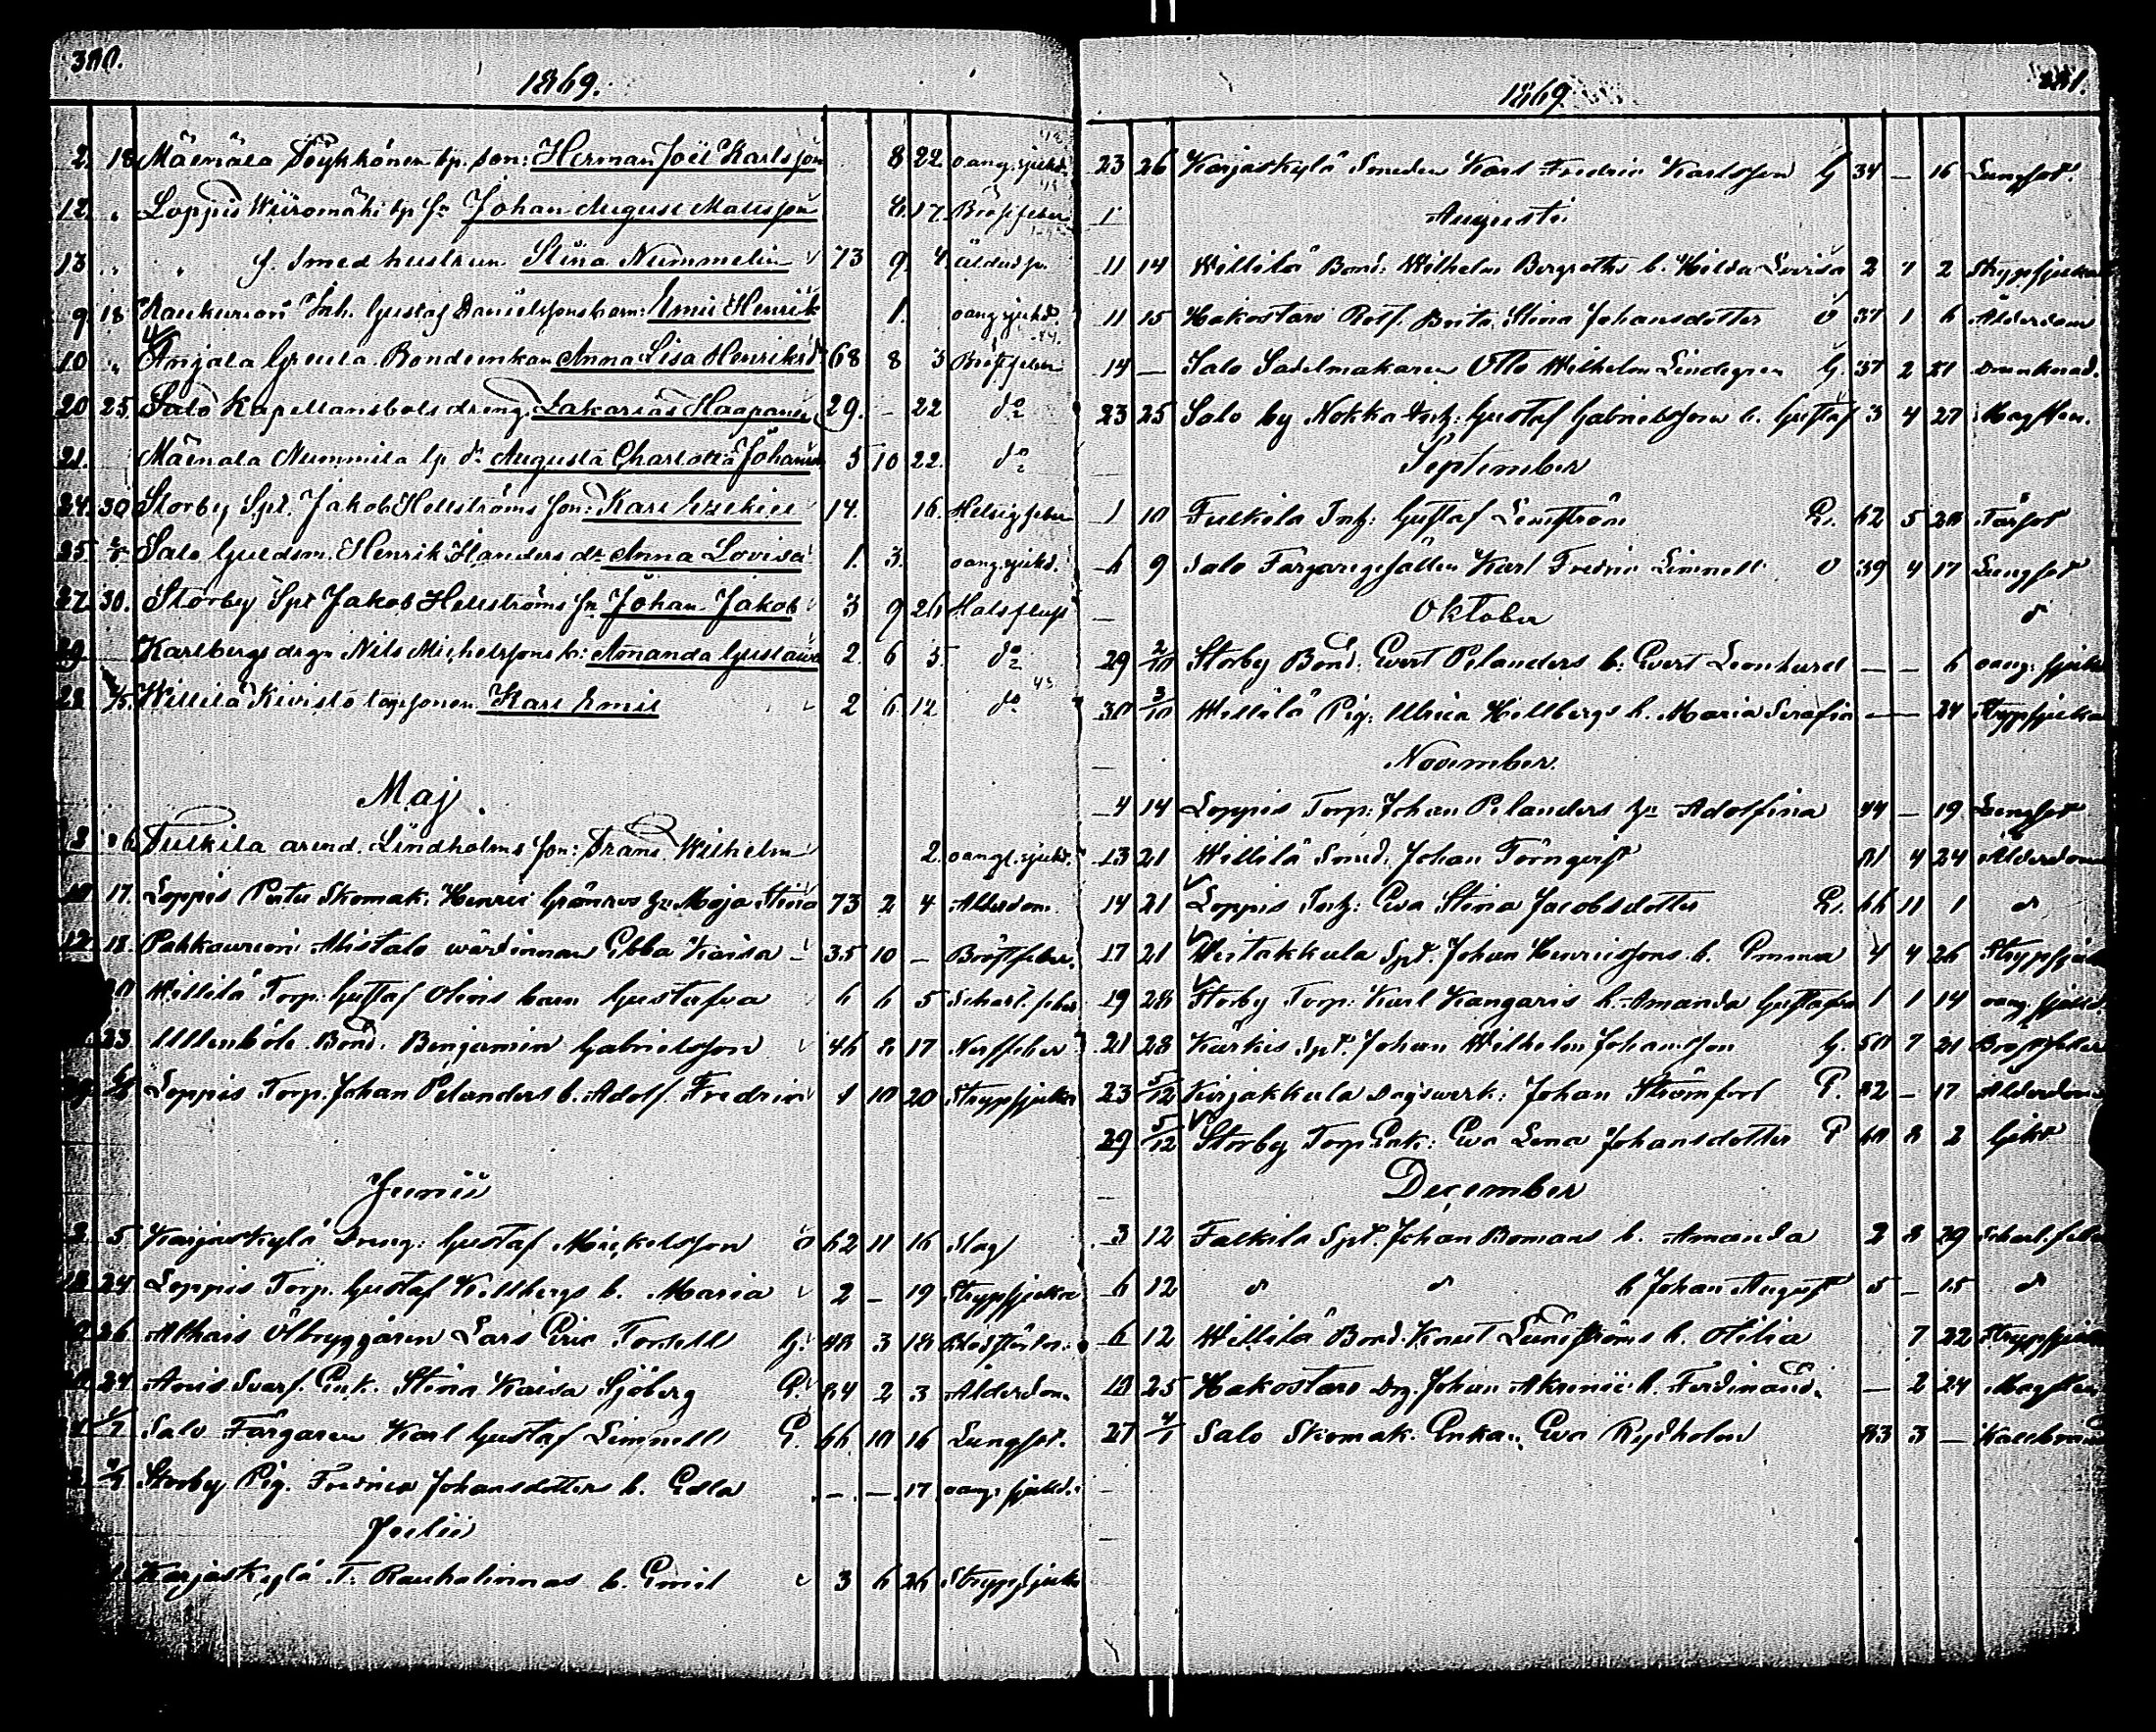 380.
1869.
2. 18 Määnälä Töykkönen tp. son: Herman Joël Karlsson 8 22. oang. sjukd.
12. " Loppis Wiiromäki tp sn Johan August Matsson 8. 17. Bröstfeber
13 " " f. Smed hustrun Stina Nummelin 73 9. 4. ålderds.
9. 18 Kaukurioni Inh. Gustaf Danielssons barn: Emil Henrik 1. oang. sjukd.
10 " Anjala Greula Bondeenkan Anna Lisa Henriksd 68 8 3 Bröstfeber
20 25. Salo Kapellansbols dreng. Zakarias Haapanen 29. - 22 do
21. Määnälä Nummila tp dr. Augusta Charlotta Johansd 5 10 22. do
24. 30. Storby Spt. Jakob Hellströms son: Karl Ezekiel 14. 16. Helsigfeber
25. Salo Guldsm. Henrik Zanders dr. Anna Lovisa 1. 3. oang. sjukd.
27. 30. Storby Spt Jakob Hellströms sn. Johan Jakob 3 9 26 Halsfluss
29. Karlberga drgn Nils Michelssons b: Amanda Gustava 2. 6 5. do
28. Willilä Kivistö togosonen Karl Emil 2 6. 12 do
Maj.
3 6 Tulkila arend. Lindholms son: Frans Wilhelm 2. oang. sjukd.
10 17. Loppis Peltu Skomak. Henric Grönroos hu Maja Stina 73 2 4 Alderdom.
12 18. Pahkavuori Alistalo wärdinnan Ebba Kaisa 35 10 - Bröstfeber.
20 Willilä Torp. Gustaf Olins barn Gustafva 6 6 5 Scharl. feber
23 Ullenböle Bond. Benjamin Gabrielsson 46 8 17 Nerffeber
Loppis Torp. Johan Pelanders b. Adolf Fredric 1 10 20 Strypsjuka
Junii
3 5 Karjaskylä Dreng: Gustaf Mickelsson o 62 11 16 Slag
18 24 Loppis Torp. Gustaf Killbergs b. Maria 2 - 19 Strypsjuka
26 Alhais Ölbryggaren Lars Eric Forsell G. 48 3 18 Blodstörtn.
24 Anis Svarf. Enk. Stina Kaisa Sjöberg E. 84 2 3 Alderdom.
Salo Färgaren Karl Gustaf Limnell E. 66 10 16 Lungsot.
Storby Pig. Fredrica Johansdotters b. Edla - - 17 oang: sjukd.
Julii
Karjaskylä T. Rauhalinnas b. Emil 3 6 26 Strypsjuka
381.
1869
23 26 Karjaskylä Smeden Karl Fredric Karlsson G 34 - 16 Lungsot.
Augusti
11 14 Willilä Bond: Wilhelm Bergroths b. Hilda Lovisa 2 7 2 Strypsjuka
11 15 Hakostaro Rotf. Brita Stina Johansdotter o 37 1 6 Alderdom
14 - Salo Sadelmakaren Otto Wilhelm Lindegren G. 37 2 21 Drunknad.
23 25 Salo by Nokka Inh: Gustaf Gabrielssons b. Gustaf 3 4 27 Mag
September
1 10 Tulkila Inh: Gustaf Lindström E. 62 5 20 Tärsot
6 9 Salo Färgaregesällen Karl Fredric Limnell O 39 4 17 Lungsot
Oktober
29 2/10 Storby Bond. Evert Pelanders b: Evert Leonhard - - 6 oang: sjukd
30 3/10 Willilä Pig: Ulrica Hellbergs b. Maria Serafia - - 24 Strypsjuka
November.
4 14 Loppis Torp: Johan Pelanders hu Adolfina 44 - 19 Lungsot
13 21 Willilä Smed. Johan Törnqvist 81 4 24 Alderdom
14 21 Loppis Inh: Eva Stina Jacobsdotter E. 66 11 1 d
17 21 Veitakkala Spt. Johan Henricssons b. Emma 4 4 26 Strypsjuka
19 28 Storby Torp: Karl Kangaris b. Amanda Gustafva 1 1 14 oang. sjukd.
21 28 Kärkis Spt. Johan Wilhelm Johansson G. 50 7 21 Bröstfeber
23 5/12 Kirjakkala Dagswerk: Johan Strömfors E. 82 - 17 Alderdom
29 5/12 Storby Torp Enk: Eva Lena Johansdotter E 60 8 2 Gikt
December
3 12 Falkila Spt. Johan Bomans b. Amanda 2 8 29 Scharl. feber
6 12 d d b Johan August 5 - 15 d
6 12 Willilä Bond. Knut Lundströms b. Otilia 7 22 Strypsjuka
18 25 Hakostaro Drg. Johan Akrenii b. Ferdinand. - 2 24 Mag
27 4/1 Salo Skomak. Enkan Eva Rydholm 83 3 - Kallbrand